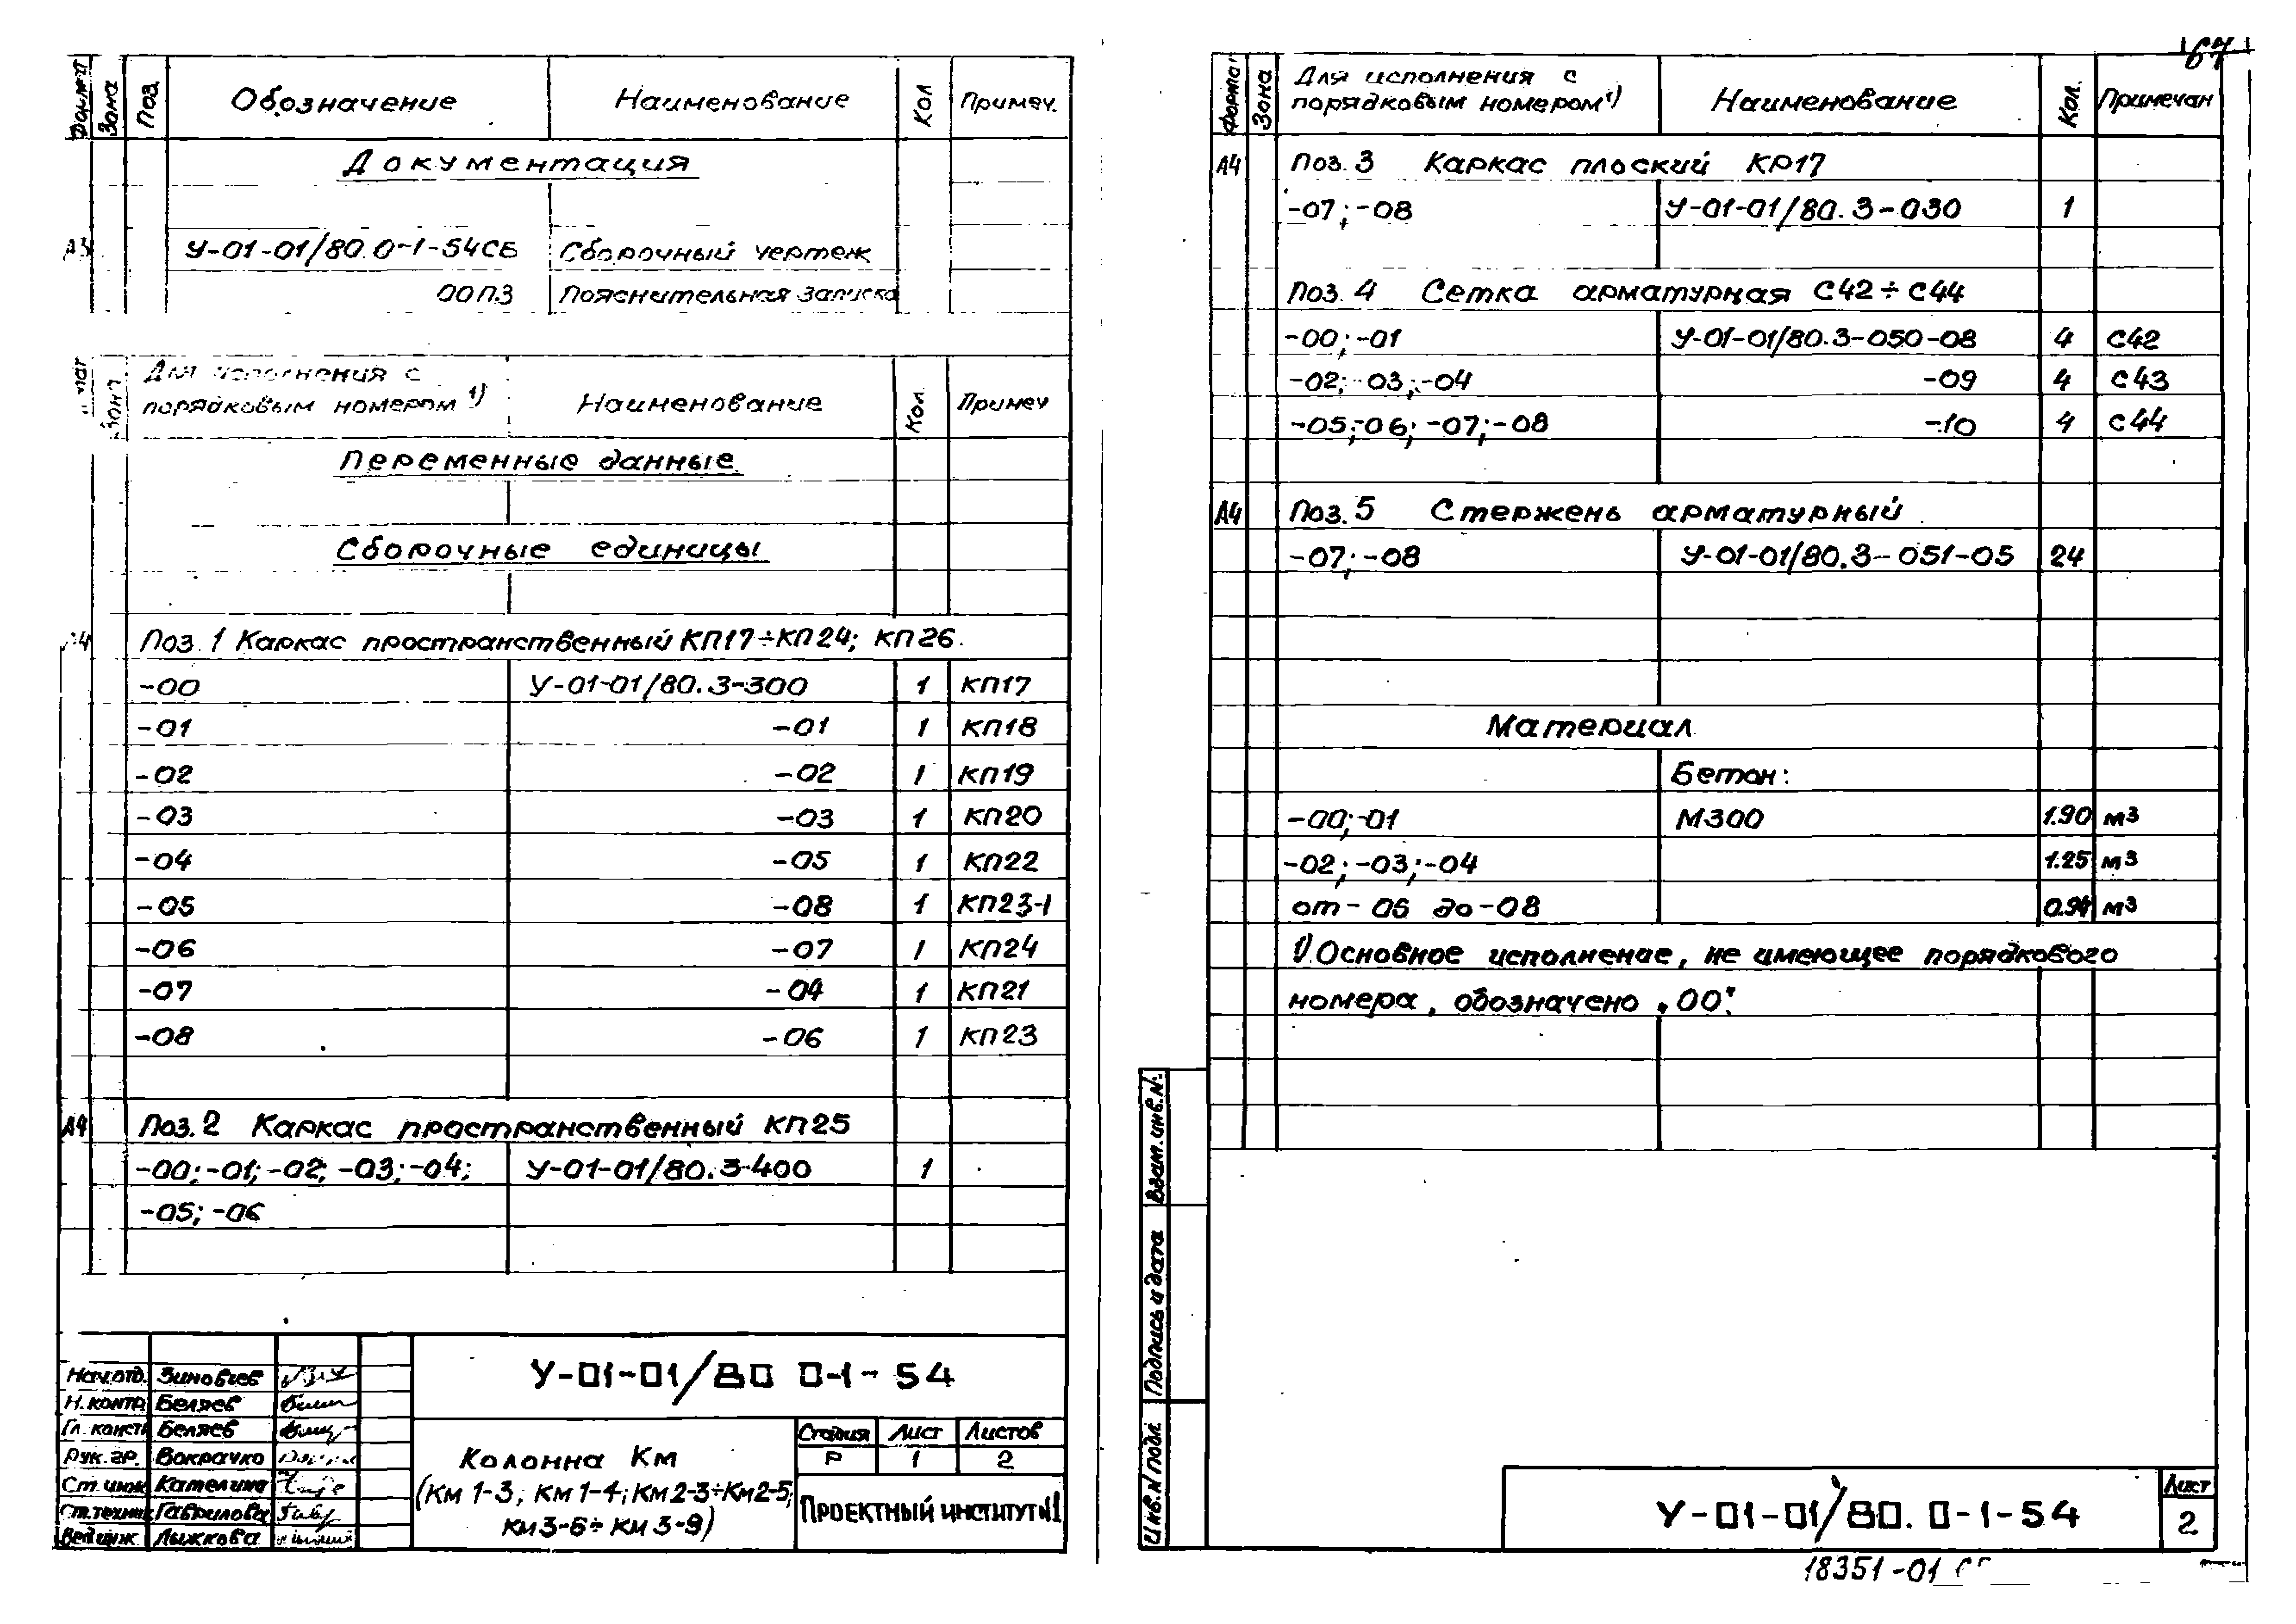 Формат Зона Поз. Обозначение Наименование Кол Примеч.
Документация
А3 У-01-01/80.0-1-54СБ Сборочный чертеж
00ПЗ Пояснительная записка
Зона Для исполнения с
порядковым номером 1) Наименование Кол. Примеч
Переменные данные
Сборочные единицы
А4 Поз. 1 Каркас пространственный КП17÷КП24; КП26.
-00 У-01-01/80.3-300 1 КП17
-01 -01 1 КП18
-02 -02 1 КП19
-03 -03 1 КП20
-04 -05 1 КП22
-05 -08 1 КП23-1
-06 -07 1 КП24
-07 -04 1 КП21
-08 -06 1 КП23
А4 Поз. 2 Каркас пространственный КП25
-00; -01; -02; -03; -04; У-01-01/80.3-400 1
-05; -06
Нач.отд. Зиновьев
Н. контр Беляев
Гл. констр Беляев
Рук. гр. Вокрачко
Ст. инж Кателина
Ст.техник Гаврилова
Вед инж. Лыжкова
У-01-01/80 0-1-54
Колонна Км
(Км 1-3; Км 1-4; Км 2-3÷Км 2-5;
Км 3-6÷ Км 3-9)
Стадия Лист Листов
Р 1 2
Проектный институт №1
67
Формат Зона Для исполнения с
порядковым номером 1) Наименование Кол. Примечан
А4 Поз. 3 Каркас плоский КР17
-07; -08 У-01-01/80.3-030 1
Поз. 4 Сетка арматурная С42÷С44
-00; -01 У-01-01/80.3-050-08 4 С42
-02; -03; -04 -09 4 С43
-05; -06; -07; -08 -10 4 С44
А4 Поз. 5 Стержень арматурный
-07; -08 У-01-01/80.3-051-05 24
Материал
Бетон:
-00; -01 М300 1.90 м3
-02; -03; -04 1.25 м3
от - 05 до -08 0.94 м3
1) Основное исполнение, не имеющее порядкового
номера, обозначено „00".
Взам. инв. №
Подпись и дата
Инв. № подл.
У-01-01/80. 0-1-54
Лист
2
18351-01